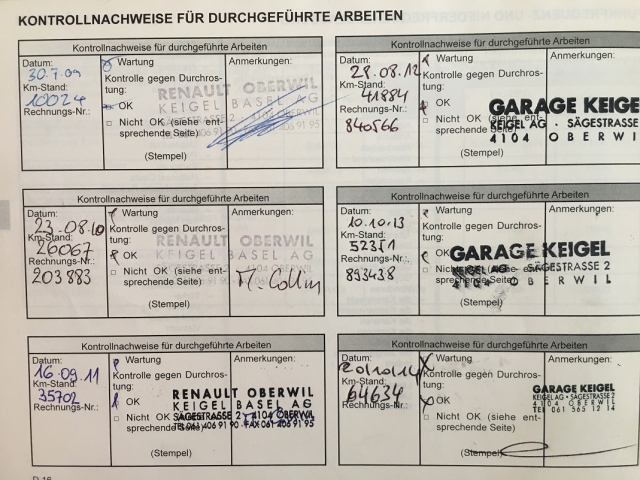 KONTROLLNACHWEISE FÜR DURCHGEFÜHRTE ARBEITEN
Kontrollnachweise für durchgeführte Arbeiten
Datum:
30.7.09
Km-Stand:
10024
Rechnungs-Nr.:
Wartung
Kontrolle gegen Durchros-
tung:
OK
Nicht OK (siehe ent-
sprechende Seite)
(Stempel)
Anmerkungen:
RENAULT OBERWIL
KEIGEL BASEL AG
Kontrollnachweise für durchgeführte Arbeiten
Datum:
23.08.10
Km-Stand:
26067
Rechnungs-Nr.:
203883
Wartung
Kontrolle gegen Durchros-
tung:
OK
Nicht OK (siehe ent-
sprechende Seite)
(Stempel)
Anmerkungen:
RENAULT OBERWIL
KEIGEL BASEL AG
Kontrollnachweise für durchgeführte Arbeiten
Datum:
16.09.11
Km-Stand:
35702
Rechnungs-Nr.:
Wartung
Kontrolle gegen Durchros-
tung:
OK
Nicht OK (siehe ent-
sprechende Seite)
(Stempel)
Anmerkungen:
RENAULT OBERWIL
KEIGEL BASEL AG
SÄGESTRASSE 2 - 4104 OBERWIL
TEL 061 406 91 90 - FAX 061 406 91 95
Kontrollnachweise für durchgeführte Arbeiten
Datum:
28.08.12
Km-Stand:
41884
Rechnungs-Nr.:
840566
Wartung
Kontrolle gegen Durchros-
tung:
OK
Nicht OK (siehe ent-
sprechende Seite)
(Stempel)
Anmerkungen:
GARAGE KEIGEL
KEIGEL AG · SÄGESTRASSE
4104 OBERWIL
Kontrollnachweise für durchgeführte Arbeiten
Datum:
10.10.13
Km-Stand:
52351
Rechnungs-Nr.:
893438
Wartung
Kontrolle gegen Durchros-
tung:
OK
Nicht OK (siehe ent-
sprechende Seite)
(Stempel)
Anmerkungen:
GARAGE KEIGEL
SÄGESTRASSE 2
OBERWIL
Kontrollnachweise für durchgeführte Arbeiten
Datum:
Km-Stand:
64634
Rechnungs-Nr.:
Wartung
Kontrolle gegen Durchros-
tung:
OK
Nicht OK (siehe ent-
sprechende Seite)
(Stempel)
Anmerkungen:
GARAGE KEIGEL
KEIGEL AG · SÄGESTRASSE 2
4104 OBERWIL
TEL 061 565 12 14